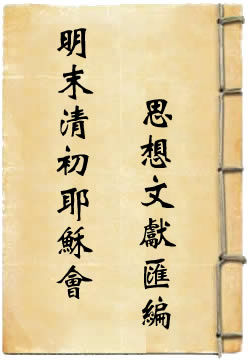 明末清初耶穌會
思想文獻匯編